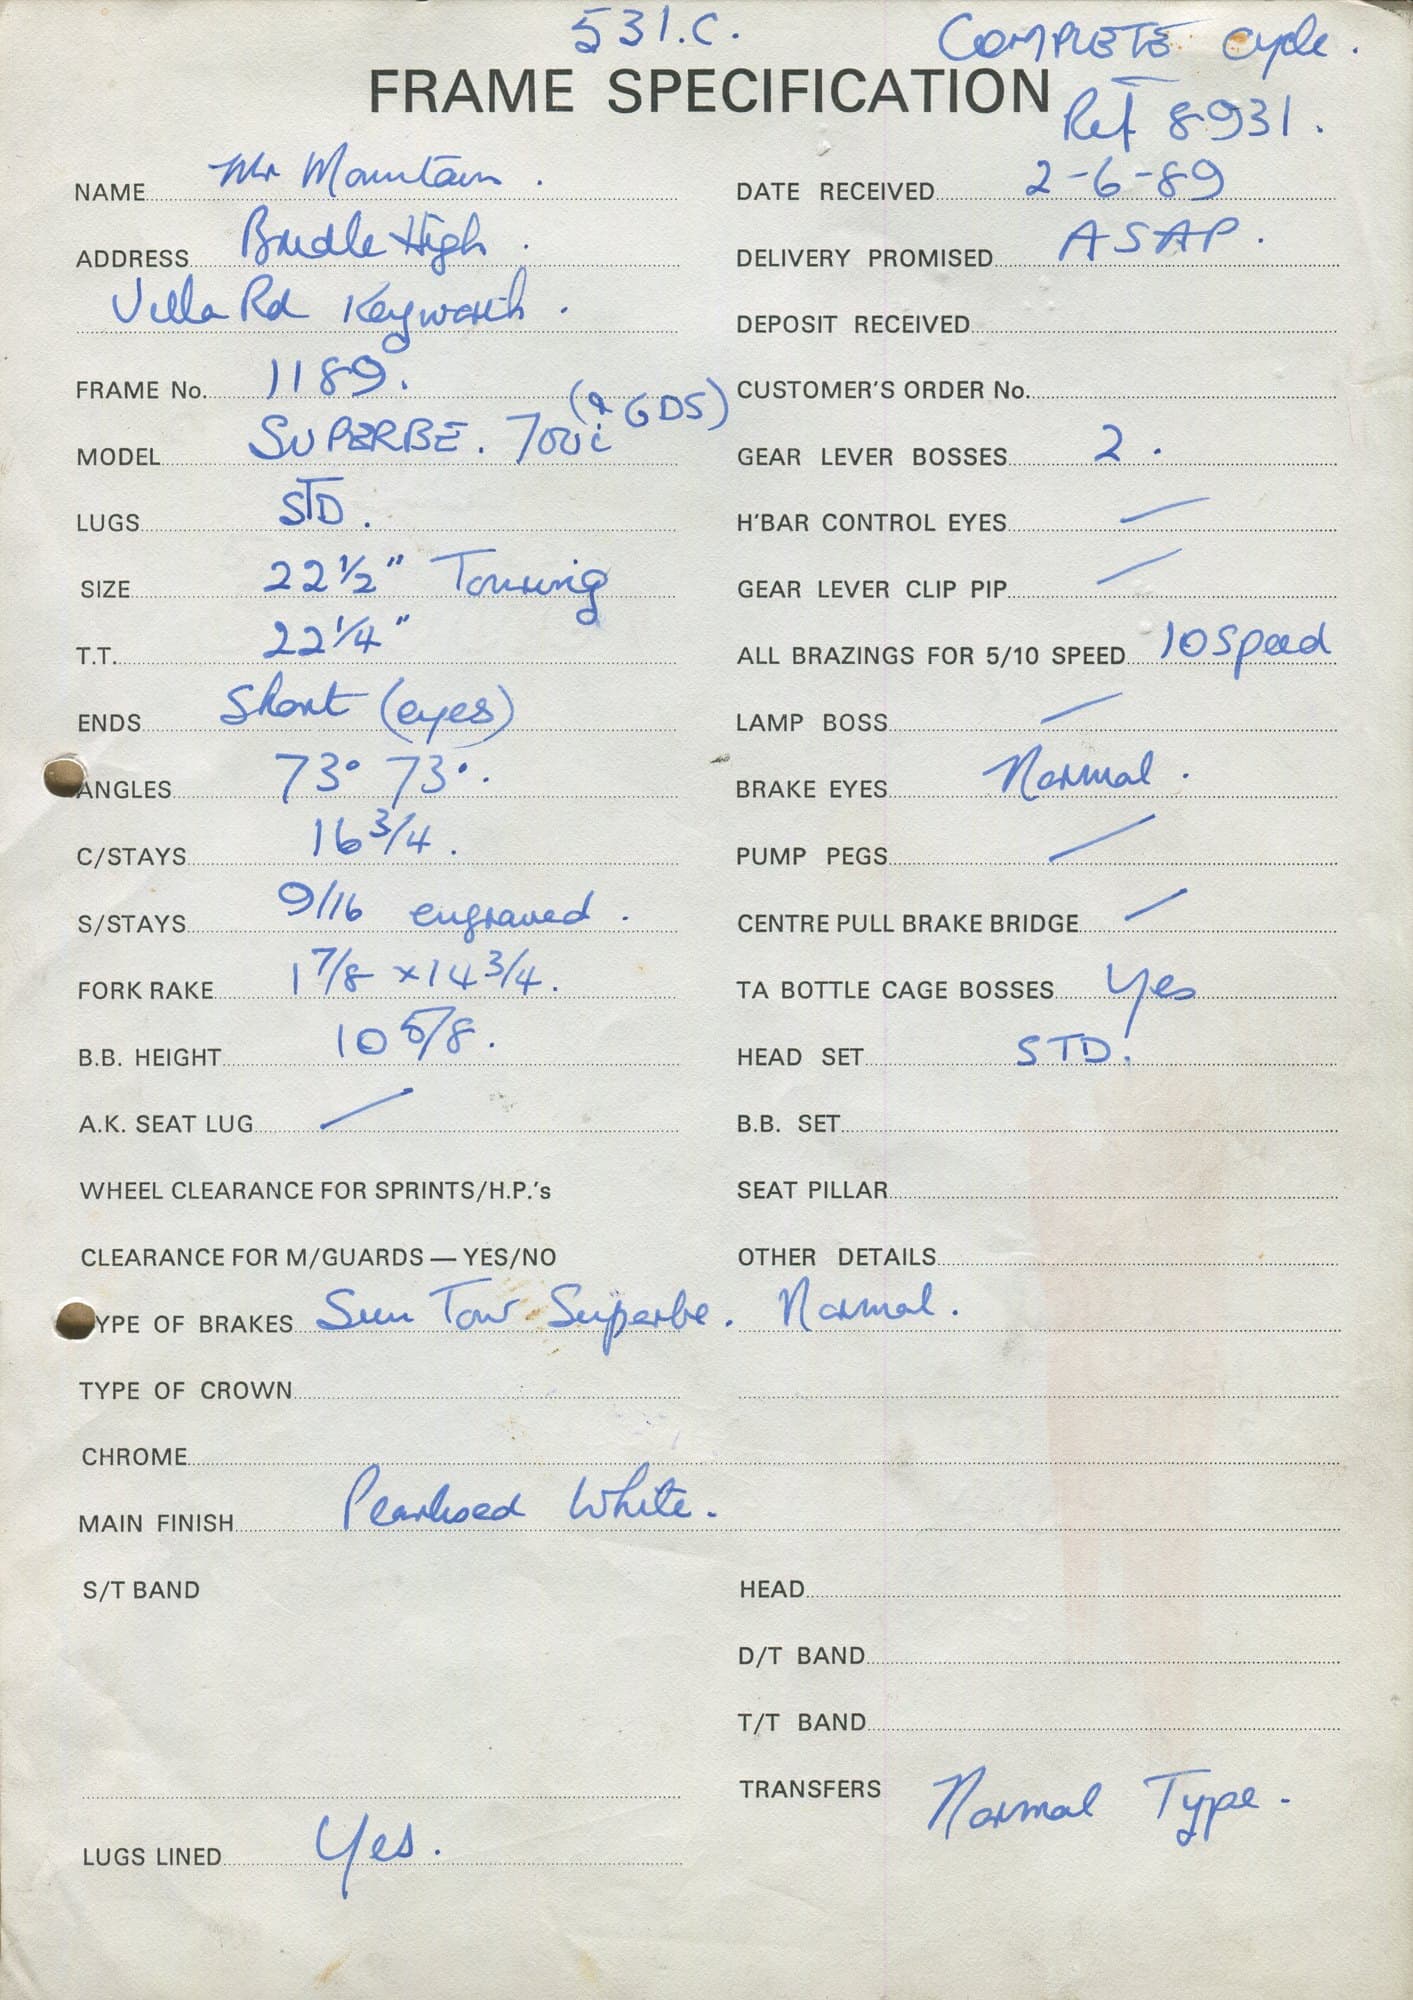 531.C. COMPLETE Cycle.
FRAME SPECIFICATION
Ref 8931.
NAME Mr Mountain.
ADDRESS Bridle High.
Villa Rd Keyworth.
FRAME No. 1189.
MODEL SUPERBE. 700c (& GDS)
LUGS STD.
SIZE 22 1/2" Touring
T.T. 22 1/4"
ENDS Short (eyes)
ANGLES 73° 73°.
C/STAYS 16 3/4.
S/STAYS 9/16 engraved.
FORK RAKE 1 7/8 x 14 3/4.
B.B. HEIGHT 10 5/8.
A.K. SEAT LUG /
WHEEL CLEARANCE FOR SPRINTS/H.P.'s
CLEARANCE FOR M/GUARDS — YES/NO
DATE RECEIVED 2-6-89
DELIVERY PROMISED ASAP.
DEPOSIT RECEIVED
CUSTOMER'S ORDER No.
GEAR LEVER BOSSES 2.
H'BAR CONTROL EYES /
GEAR LEVER CLIP PIP /
ALL BRAZINGS FOR 5/10 SPEED 10 Speed
LAMP BOSS /
BRAKE EYES Normal.
PUMP PEGS /
CENTRE PULL BRAKE BRIDGE /
TA BOTTLE CAGE BOSSES Yes
HEAD SET STD.
B.B. SET
SEAT PILLAR
OTHER DETAILS
TYPE OF BRAKES Sun Tour Superbe. Normal.
TYPE OF CROWN
CHROME
MAIN FINISH Pearlised White.
S/T BAND
HEAD
D/T BAND
T/T BAND
TRANSFERS Normal Type.
LUGS LINED Yes.